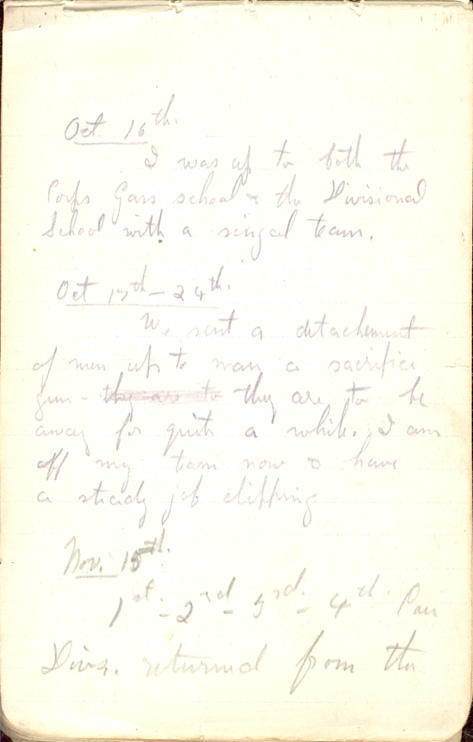 Oct 16th.
I was up to both the
Corps Gass school & the Divisional
School with a singel team.
Oct 17th - 24th.
We sent a detachement
of men up to man a sacrifice
gun - they are to they are to be
away for quite a while. I am
off my team now & have
a steady job clipping
Nov. 15th.
1st - 2nd - 3rd - 4th. Can
Divs. returned from the